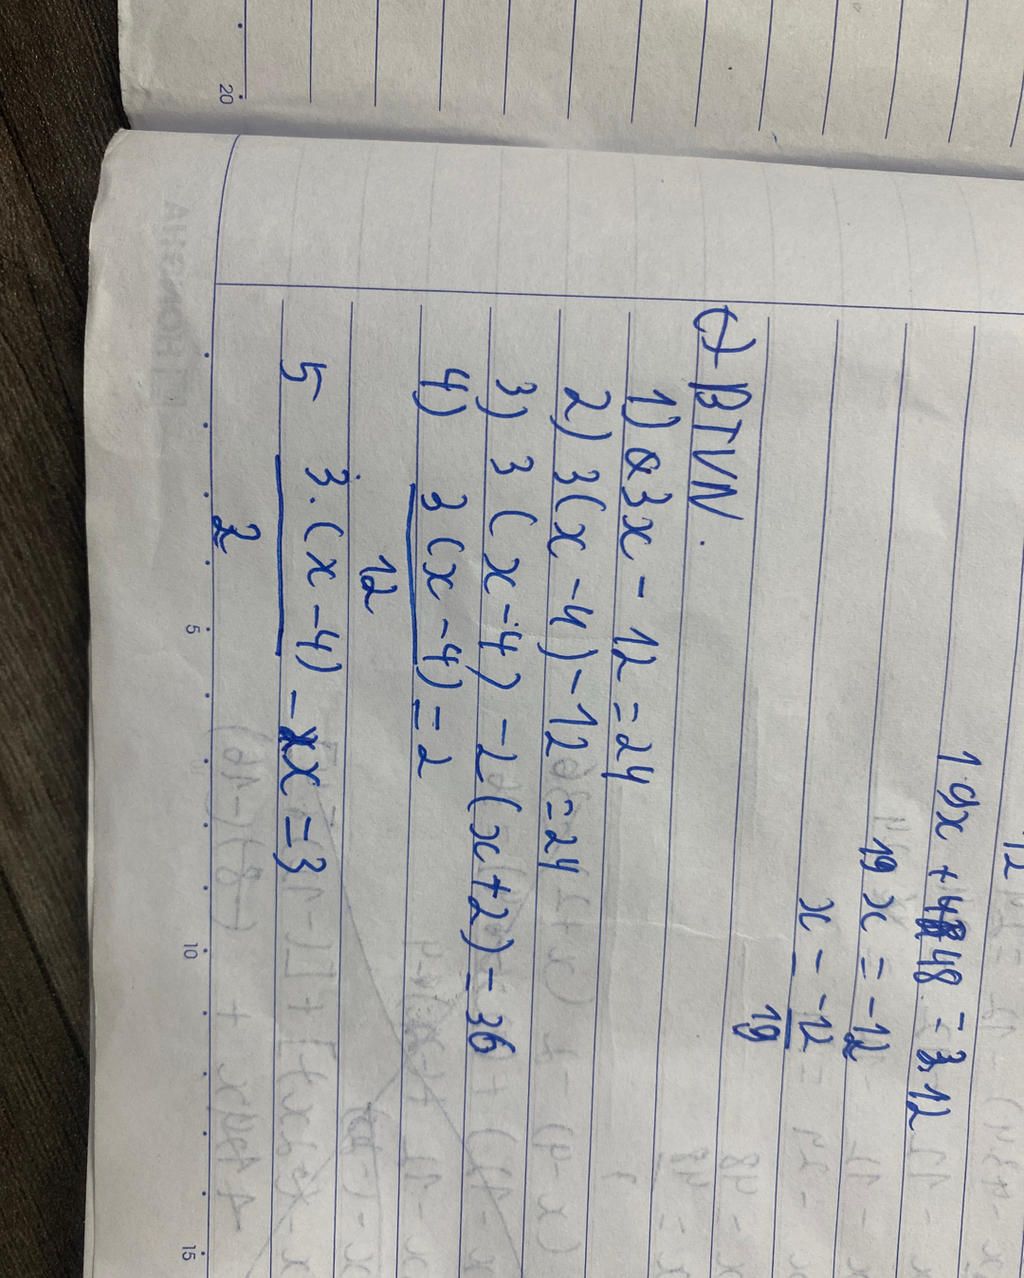 19x + 48 = 3.12
19x = -12
x = -12
19
c) BTVN.
1) 3x - 12 = 24
2) 3(x - 4) - 12 = 24
3) 3(x - 4) - 2(x + 2) = 36
4) 3(x - 4) = 2
12
5 3.(x - 4) - x = 3
2
20
5
10
15